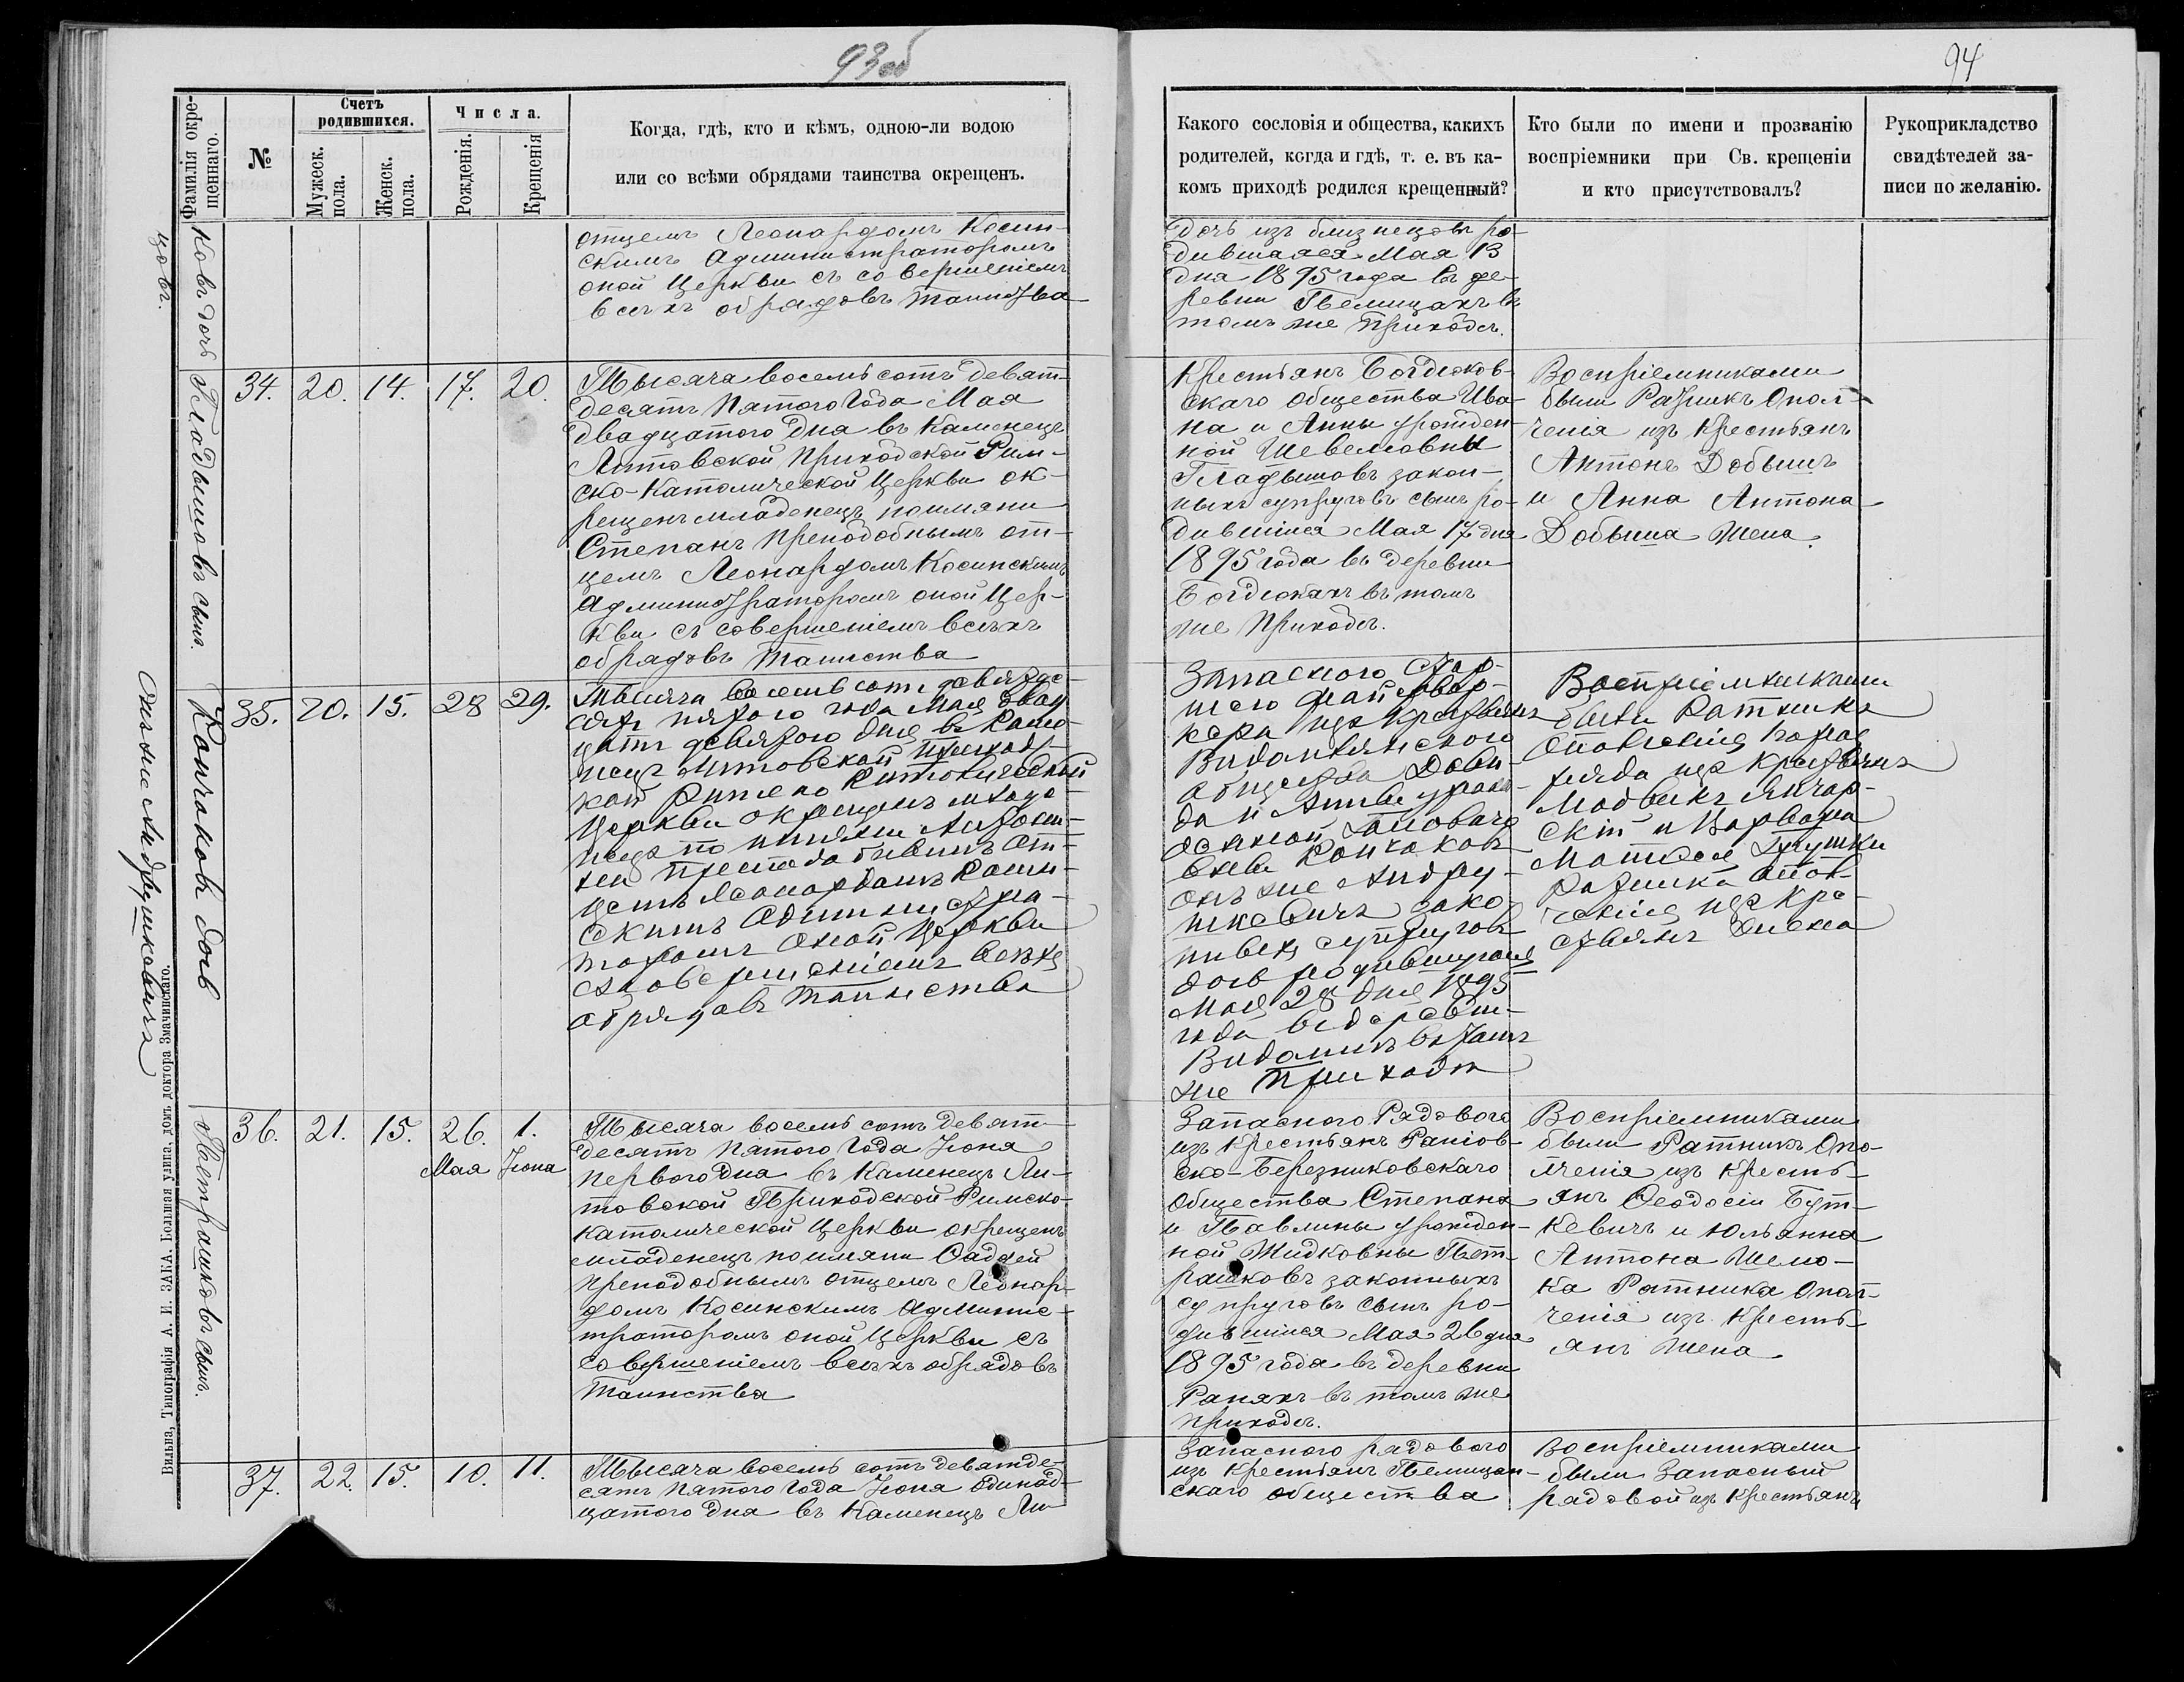 93об
94
Фамилія окре-
щеннаго.
№
Счетъ
родившихся.
Мужеск.
пола.
Женск.
пола.
Числа.
Рожденія.
Крещенія
Когда, гдѣ, кто и кѣмъ, одною-ли водою
или со всѣми обрядами таинства окрещенъ.
Какого сословія и общества, какихъ
родителей, когда и гдѣ, т. е. въ ка-
комъ приходѣ родился крещенный?
Кто были по имени и прозванію
воспріемники при Св. крещеніи
и кто присутствовалъ?
Рукоприкладство
свидѣтелей за-
писи по желанію.
отцемъ Леонардомъ Косин-
скимъ Администраторомъ
оной Церкви съ совершеніемъ
всѣхъ обрядовъ Таинства
дочь изъ близнецовъ ро-
дившаяся Мая 13
дня 1895 года въ де-
ревни Пелищахъ въ
томъ же Приходѣ.
Гладышовъ сынъ.
34. 20. 14. 17. 20.
Тысяча восемьсотъ девят-
десятъ Пятого Года Мая
двадцатого дня въ Каменецъ
Литовской Приходской Рим-
ско-Католической Церкви ок-
рещенъ младенецъ поимяни
Степанъ Преподобнымъ от-
цемъ Леонардомъ Косинскимъ
Администраторомъ оной Цер-
кви съ совершеніемъ всѣхъ
обрядовъ Таинства
Крестьянъ Богдюков-
скаго Общества Ива-
на и Анны урожден-
ной Шевеловны
Гладышовъ закон-
ныхъ супруговъ сынъ ро-
дившійся Мая 17 дня
1895 года въ деревни
Богдюкахъ въ томъ
же Приходѣ.
Воспріемниками
были Ратникъ Опол-
ченія изъ Крестьянъ
Антонъ Добышъ
и Анна Антона
Добыша Жена.
Кончаковъ дочь
онъ же Андрушкевичъ
35. 20. 15. 28 29.
Тысяча восемьсотъ девятде-
сятъ пятого года Мая двад-
цатъ девятого дня въ Каме-
нецъ Литовской Приход-
ской Римско Католической
Церкви окрещенъ младе-
нецъ по имяни
Преподобнымъ от-
цемъ Леонардомъ Косин-
скимъ Администра-
торомъ оной Церкви
съ совершеніемъ всѣхъ
обрядовъ Таинства
Запасного Стар-
шего
изъ Крестьянъ
Видомлянского
общества Дави-
да и
Кончаковъ
онъ же Андру-
шкевичъ зако-
нныхъ супруговъ
дочь родившуюся
Мая 28 дня 1895
года въ деревни
Видомли въ томъ
же Приходѣ
Воспріемниками
были Ратникъ
Ополченія
изъ Крестьянъ
и Варвара
Ратника Опол-
ченія изъ Кре-
стьянъ Жена
Петрашковъ сынъ.
36. 21. 15. 26. 1.
Мая Іюна
Тысяча восемь сотъ девят-
десятъ Пятого Года Іюна
первого дня въ Каменецъ Ли-
товской Приходской Римско-
Католической Церкви окрещенъ
младенецъ поимяни Фаддей
Преподобнымъ отцемъ Леонар-
домъ Косинскимъ Админис-
траторомъ оной Церкви съ
совершеніемъ всѣхъ обрядовъ
Таинства
Запасного Рядового
изъ Крестьянъ
Березниковскаго
Общества Степана
и Павлины урожден-
ной Жидковны Пет-
рашковъ законныхъ
супруговъ сынъ ро-
дившійся Мая 26 дня
1895 года въ деревни
въ томъ же
Приходѣ.
Воспріемниками
были Ратникъ Опо-
лченія изъ Кресть-
янъ Феодосій Бут-
кевичъ и Юльянна
Антона Шело-
ка Ратника Опол-
ченія изъ Кресть-
янъ Жена
37. 22. 15. 10. 11.
Тысяча восемь сотъ девятде-
сятъ Пятого Года Іюна одинад-
цатого дня въ Каменецъ Ли-
Запасного рядового
изъ Крестьянъ Пелищан-
скаго общества
Воспріемниками
были Запасный
рядовой изъ Крестьянъ
Вильна, Типографія А. И. ЗАКА. Большая улица, домъ доктора Змачинскаго.